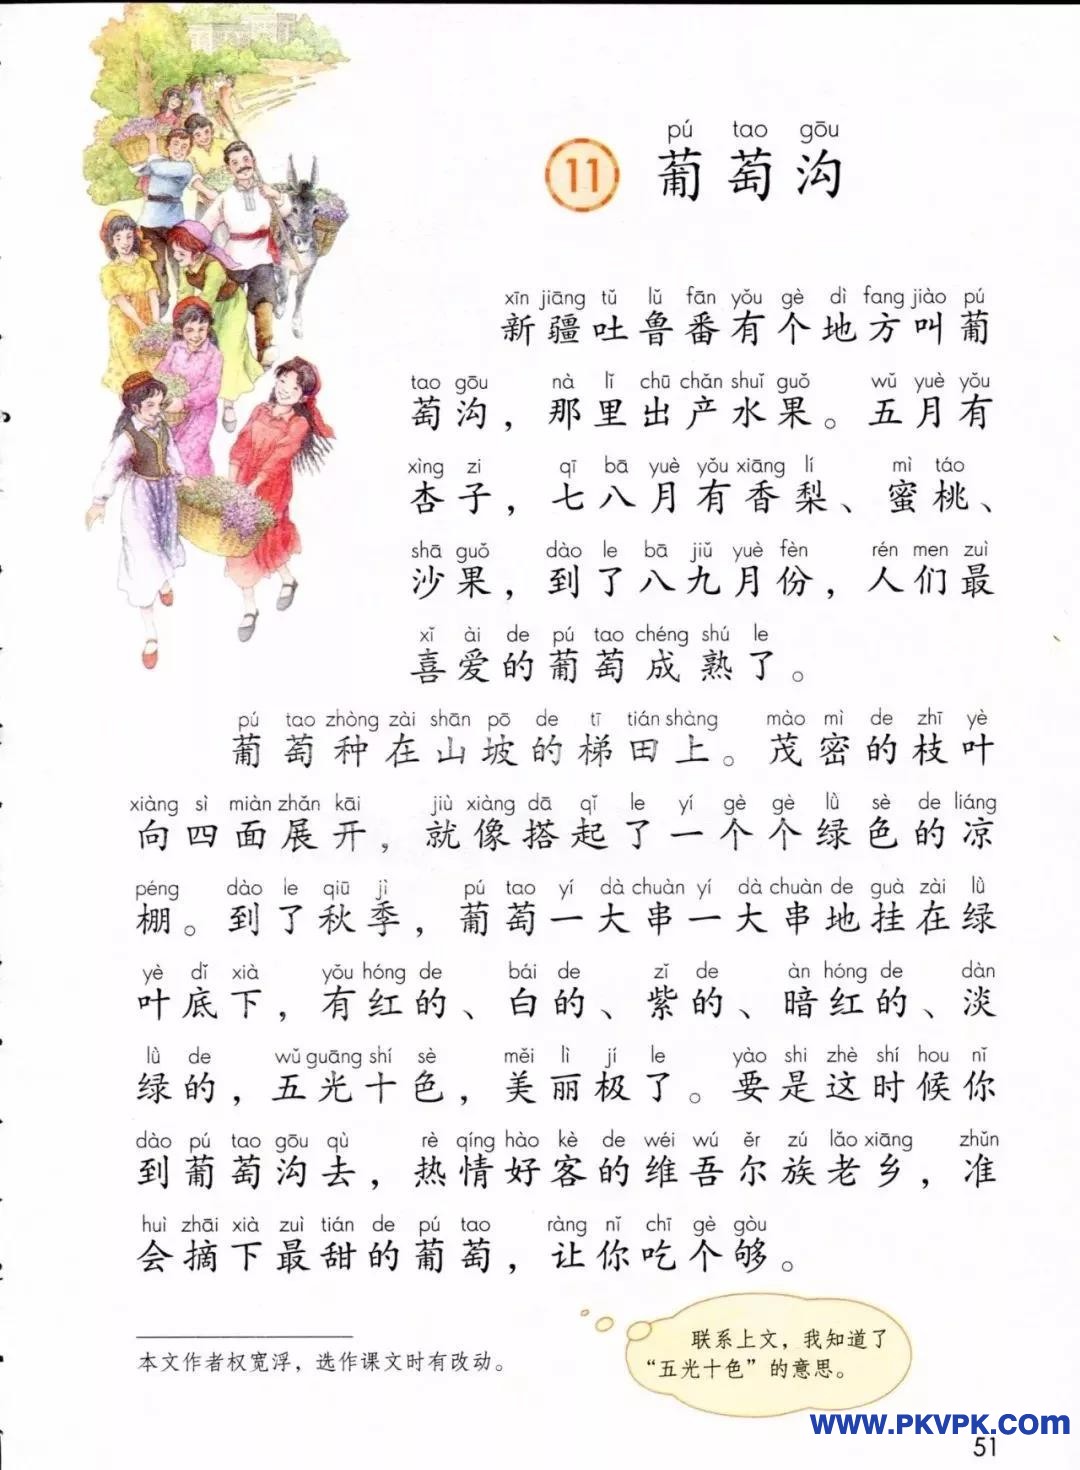 pú tao gōu
11 葡萄沟
xīn jiāng tǔ lǔ fān yǒu gè dì fang jiào pú
新疆吐鲁番有个地方叫葡
tao gōu nà lǐ chū chǎn shuǐ guǒ wǔ yuè yǒu
萄沟，那里出产水果。五月有
xìng zi qī bā yuè yǒu xiāng lí mì táo
杏子，七八月有香梨、蜜桃、
shā guǒ dào le bā jiǔ yuè fèn rén men zuì
沙果，到了八九月份，人们最
xǐ ài de pú tao chéng shú le
喜爱的葡萄成熟了。
pú tao zhòng zài shān pō de tī tián shàng mào mì de zhī yè
葡萄种在山坡的梯田上。茂密的枝叶
xiàng sì miàn zhǎn kāi jiù xiàng dā qǐ le yí gè gè lǜ sè de liáng
向四面展开，就像搭起了一个个绿色的凉
péng dào le qiū jì pú tao yí dà chuàn yí dà chuàn de guà zài lǜ
棚。到了秋季，葡萄一大串一大串地挂在绿
yè dǐ xià yǒu hóng de bái de zǐ de àn hóng de dàn
叶底下，有红的、白的、紫的、暗红的、淡
lǜ de wǔ guāng shí sè měi lì jí le yào shi zhè shí hou nǐ
绿的，五光十色，美丽极了。要是这时候你
dào pú tao gōu qù rè qíng hào kè de wéi wú ěr zú lǎo xiāng zhǔn
到葡萄沟去，热情好客的维吾尔族老乡，准
huì zhāi xià zuì tián de pú tao ràng nǐ chī gè gòu
会摘下最甜的葡萄，让你吃个够。
联系上文，我知道了
“五光十色”的意思。
本文作者权宽浮，选作课文时有改动。
www.PKVPK.com
51